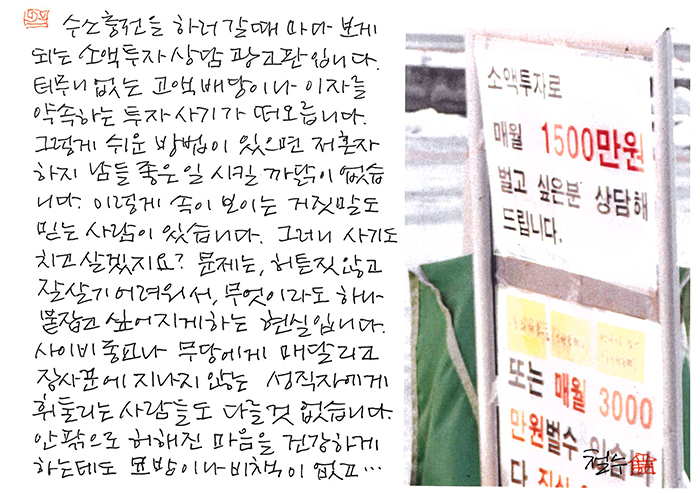 수소충전을 하러 갈때 마다 보게
되는 소액투자 상담 광고판입니다.
터무니 없는 고액배당이나 이자를
약속하는 투자 사기가 떠오릅니다.
그렇게 쉬운 방법이 있으면 저혼자
하지 남들 좋은일 시킬 까닭이 없습
니다. 이렇게 속이 보이는 거짓말도
믿는 사람이 있습니다. 그러니 사기도
치고 살겠지요? 문제는, 허튼짓 않고
잘살기 어려워서, 무엇이라도 하나
붙잡고 싶어지게하는 현실입니다.
사이비종교나 무당에게 매달리고
장사꾼에 지나지 않는 성직자에게
휘둘리는 사람들도 다를것 없습니다.
안팎으로 허해진 마음을 건강하게
하는데도 묘방이나 비책이 없고…
소액투자로
매월 1500만원
벌고 싶은분 상담해
드립니다.
또는 매월 3000
만원벌수 있습니다
철수